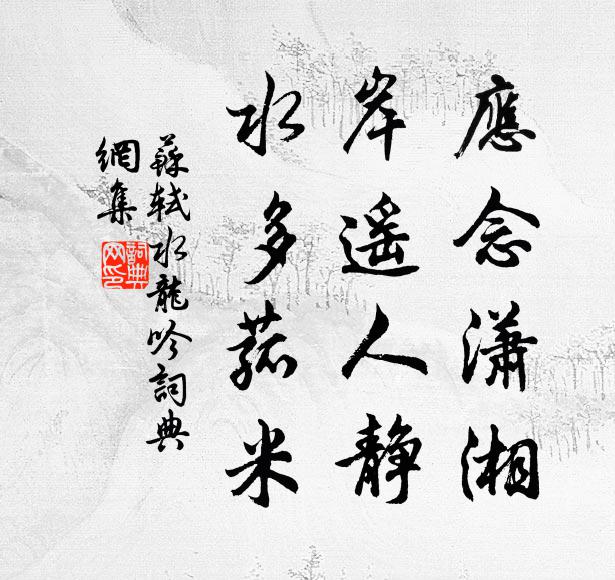 應念潇湘
岸遥人静
水多菰米
蘇軾水龍吟詞典
網集
詞典
网印